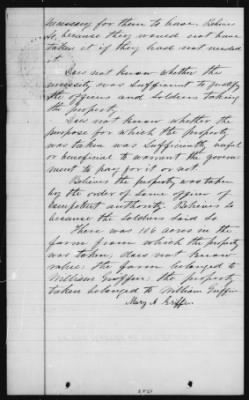 necessary for them to have. Believes
so, because they would not have
taken it if they had not needed
it.
Does not know whether the
necessity was sufficient to justify
the officers and soldiers taking
the property.
Does not know whether the
purpose for which the property
was taken was sufficiently useful
or beneficial to warrant the govern
ment to pay for it or not.
Believes the property was taken
by the order of some officer of
competent authority. Believes so
because the soldiers said so.
There was 106 acres in the
farm from which the property
was taken, does not know
value. The farm belonged to
William Griffin the property
taken belonged to William Griffin
Mary A Griffin